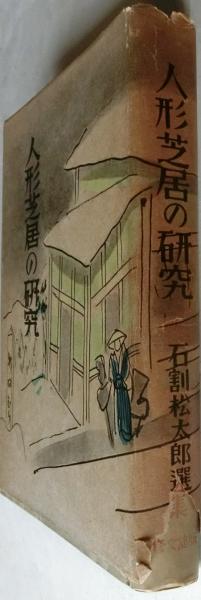 人形芝居の研究
人形芝居の研究
石割松太郎選集